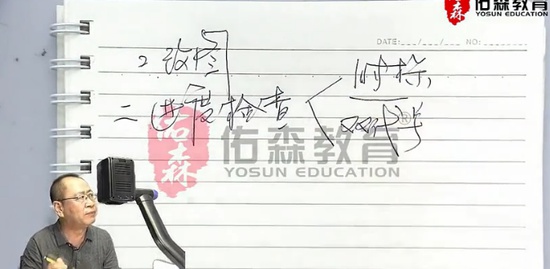 佑森教育
YOSUN EDUCATION
佑森
DATE: / / NO:
2.改
二、进度检查 时标
双代号
佑森
佑森教育
YOSUN EDUCATION